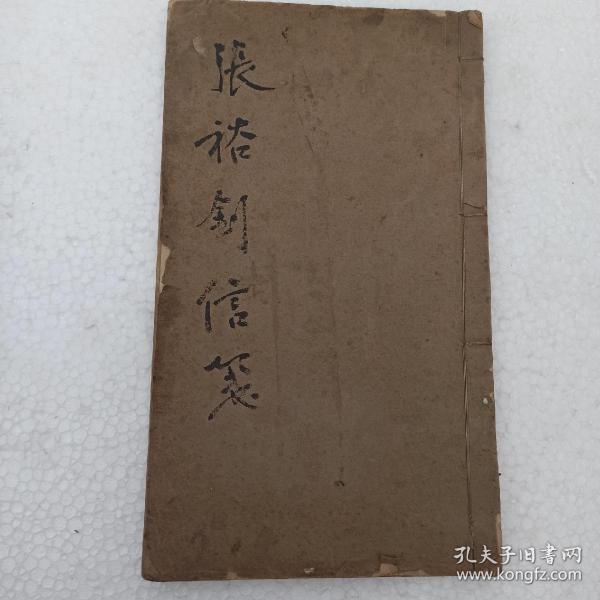 張裕釗信箋
孔夫子旧書网
www.kongfz.com